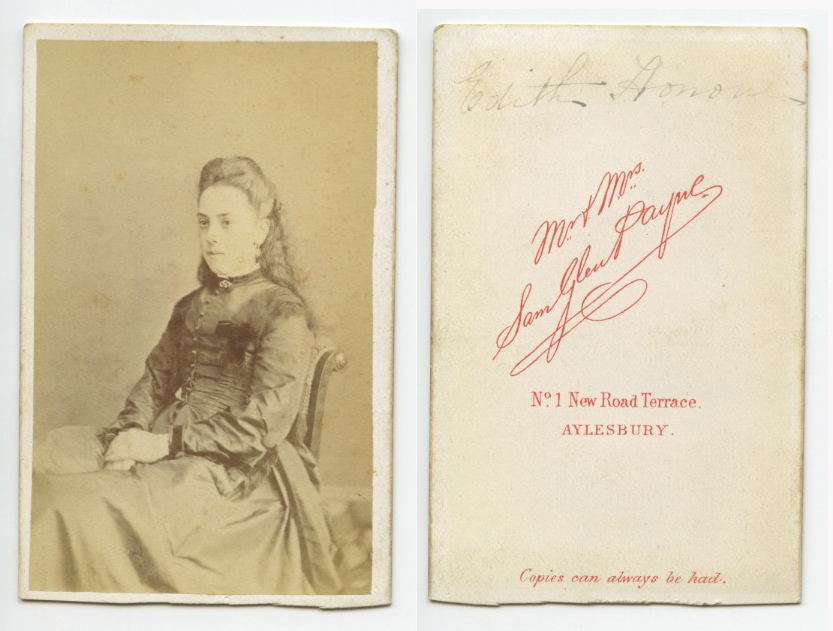 Edith Honour
Mr. & Mrs.
Sam Glen Payne.
No. 1 New Road Terrace.
AYLESBURY.
Copies can always be had.